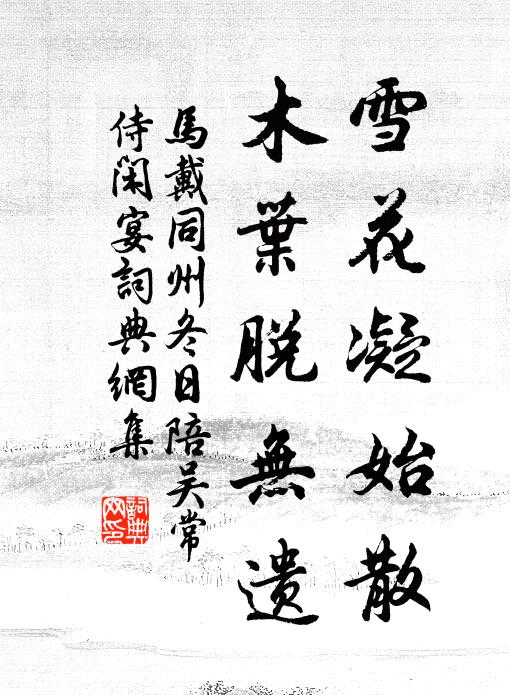 雪花凝始散
木葉脱無遺
馬戴同州冬日陪吴常
侍閑宴詞典網集
詞典
网印